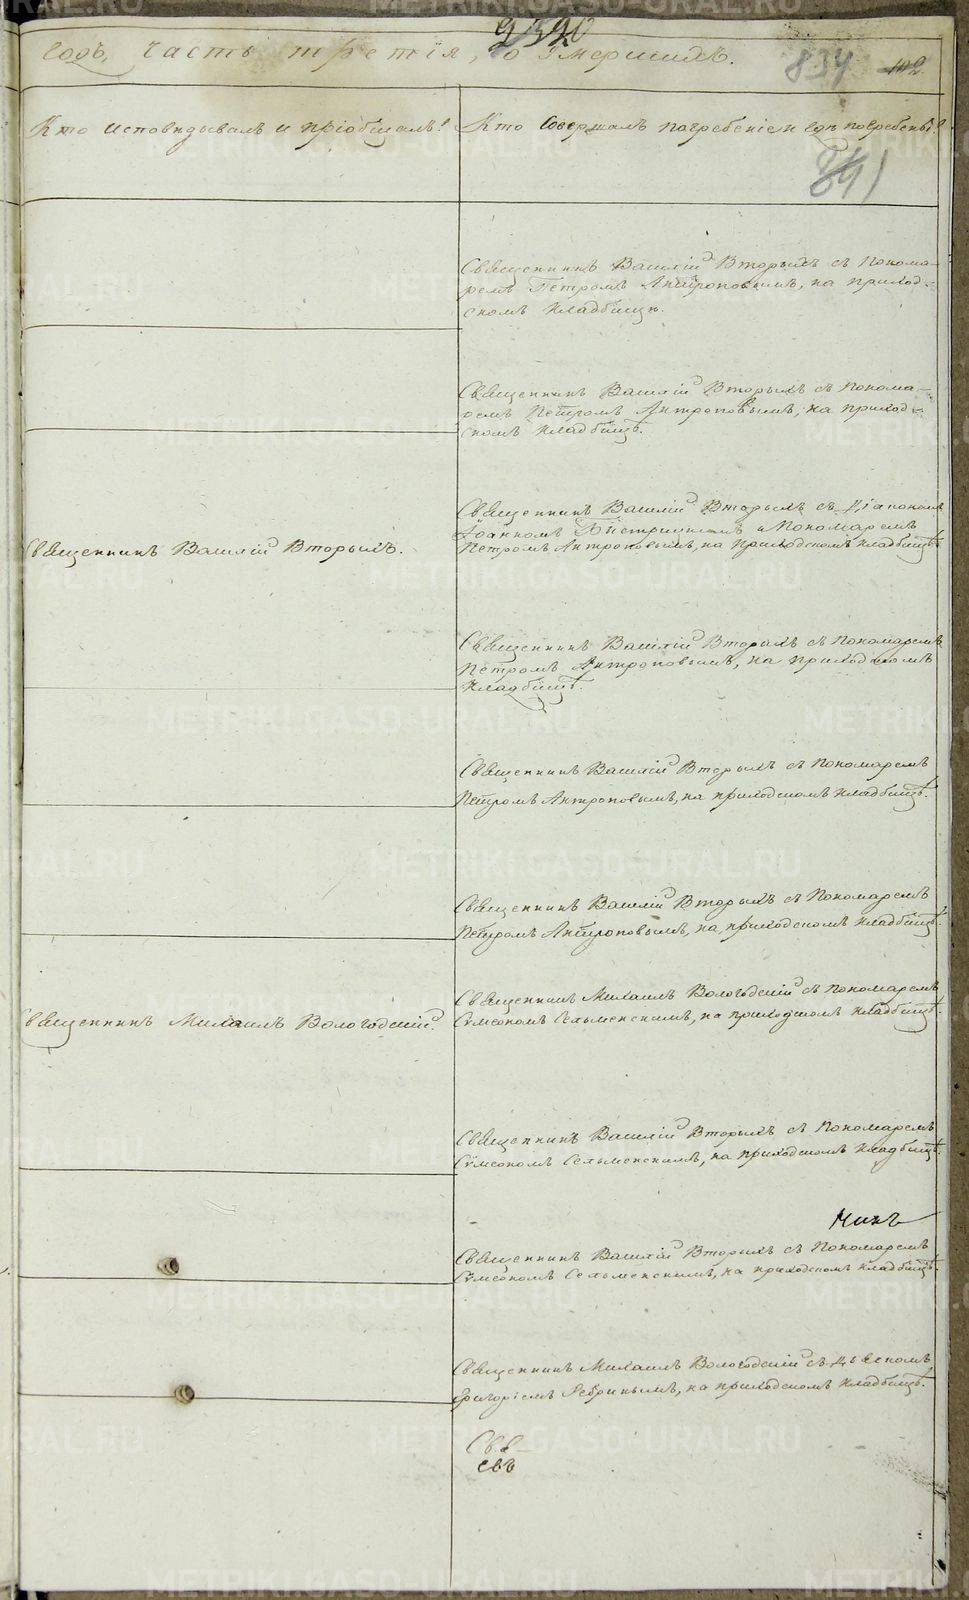 2320
годъ, часть третія, о Умершихъ.
834
102
Кто исповѣдывалъ и пріобщалъ?
Кто Совершалъ погребеніе и гдѣ погребены?
841
Священникъ Василій Вторыхъ съ Понома-
ремъ Петромъ Антроповымъ, на приход-
скомъ кладбищѣ.
Священникъ Василій Вторыхъ съ Понома-
ремъ Петромъ Антроповымъ, на приход-
скомъ кладбищѣ.
Священникъ Василій Вторыхъ.
Священникъ Василій Вторыхъ съ Діакономъ
Іоанномъ и Пономаремъ
Петромъ Антроповымъ, на Приходскомъ кладбищѣ
Священникъ Василій Вторыхъ съ Пономаремъ
Петромъ Антроповымъ, на приходскомъ
кладбищѣ.
Священникъ Василій Вторыхъ съ Пономаремъ
Петромъ Антроповымъ, на приходскомъ кладбищѣ.
Священникъ Василій Вторыхъ съ Пономаремъ
Петромъ Антроповымъ, на приходскомъ кладбищѣ.
Священникъ Михаилъ Вологодскій.
Священникъ Михаилъ Вологодскій съ Пономаремъ
Сумеономъ Сельменскимъ, на приходскомъ кладбищѣ.
Священникъ Василій Вторыхъ съ Пономаремъ
Сумеономъ Сельменскимъ, на приходскомъ кладбищѣ.
Священникъ Василій Вторыхъ съ Пономаремъ
Сумеономъ Сельменскимъ, на приходскомъ кладбищѣ.
Священникъ Михаилъ Вологодскій съ Дьячкомъ
Григоріемъ Ребринымъ, на приходскомъ кладбищѣ.